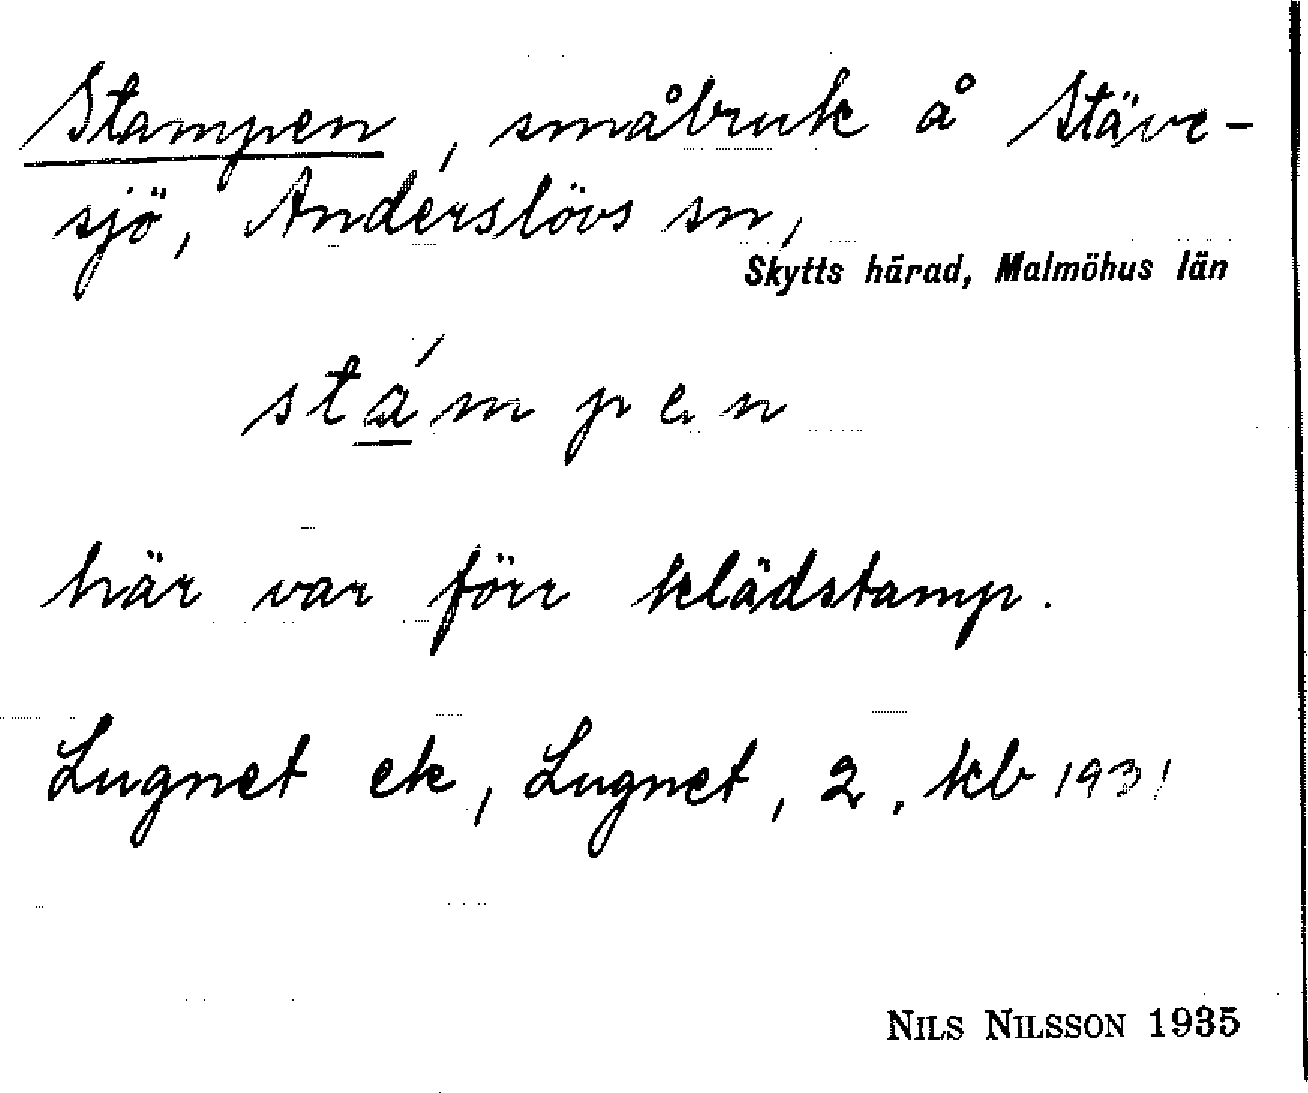 Stampen, småbruk å Stäve-
sjö, Anderslövs sn,
Skytts härad, Malmöhus län
stámpen
här var förr klädstamp.
Lugnet ek, Lugnet, 2, kb 1931
NILS NILSSON 1935